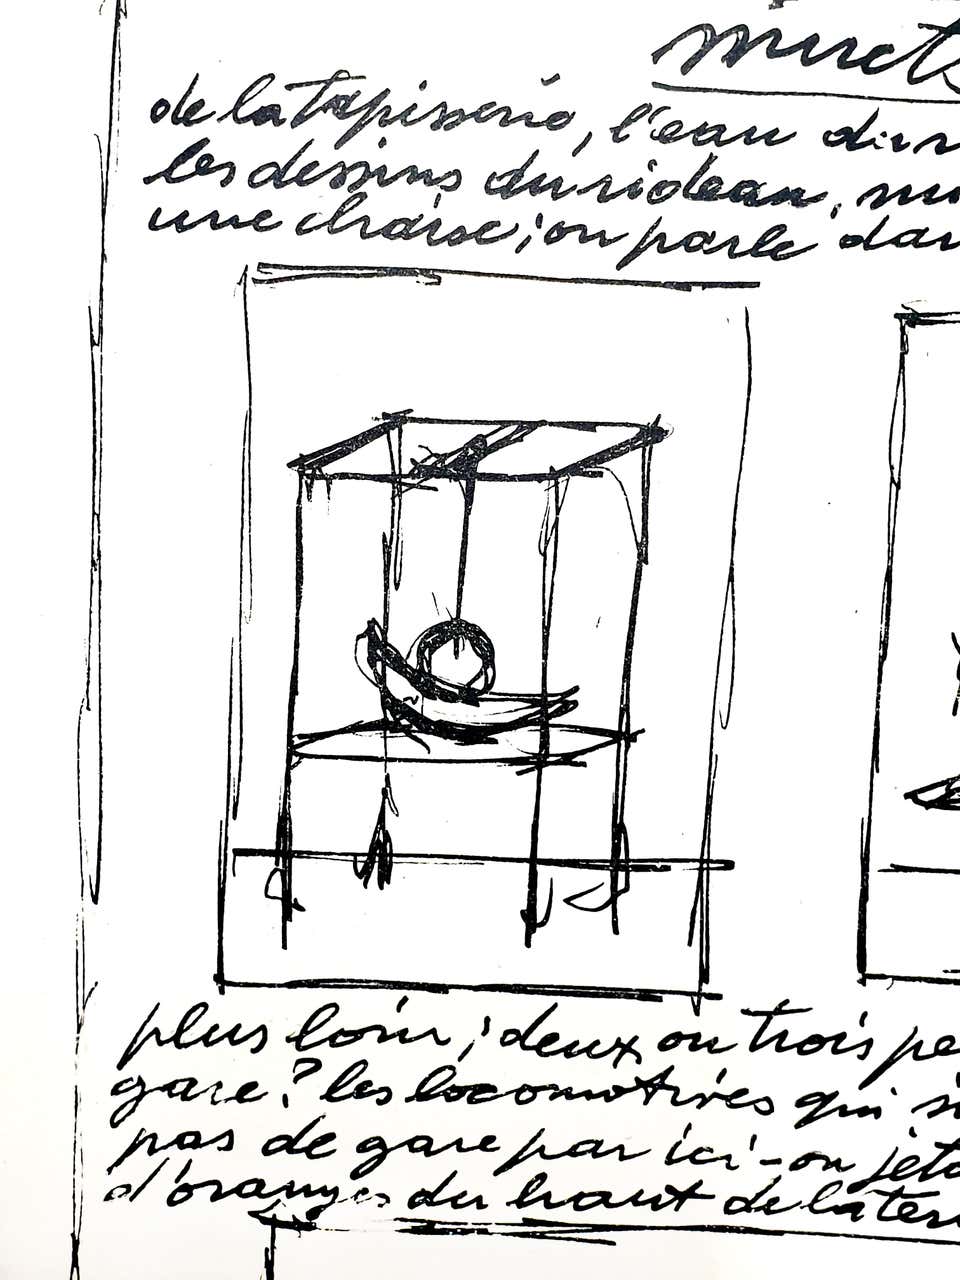 muets
de la tapisserie, l'eau
les dessins du rideau,
une chaise; on parle
plus loin; deux ou trois
gare? les locomotives qui
pas de gare par ici – on
d'oranges du haut de la